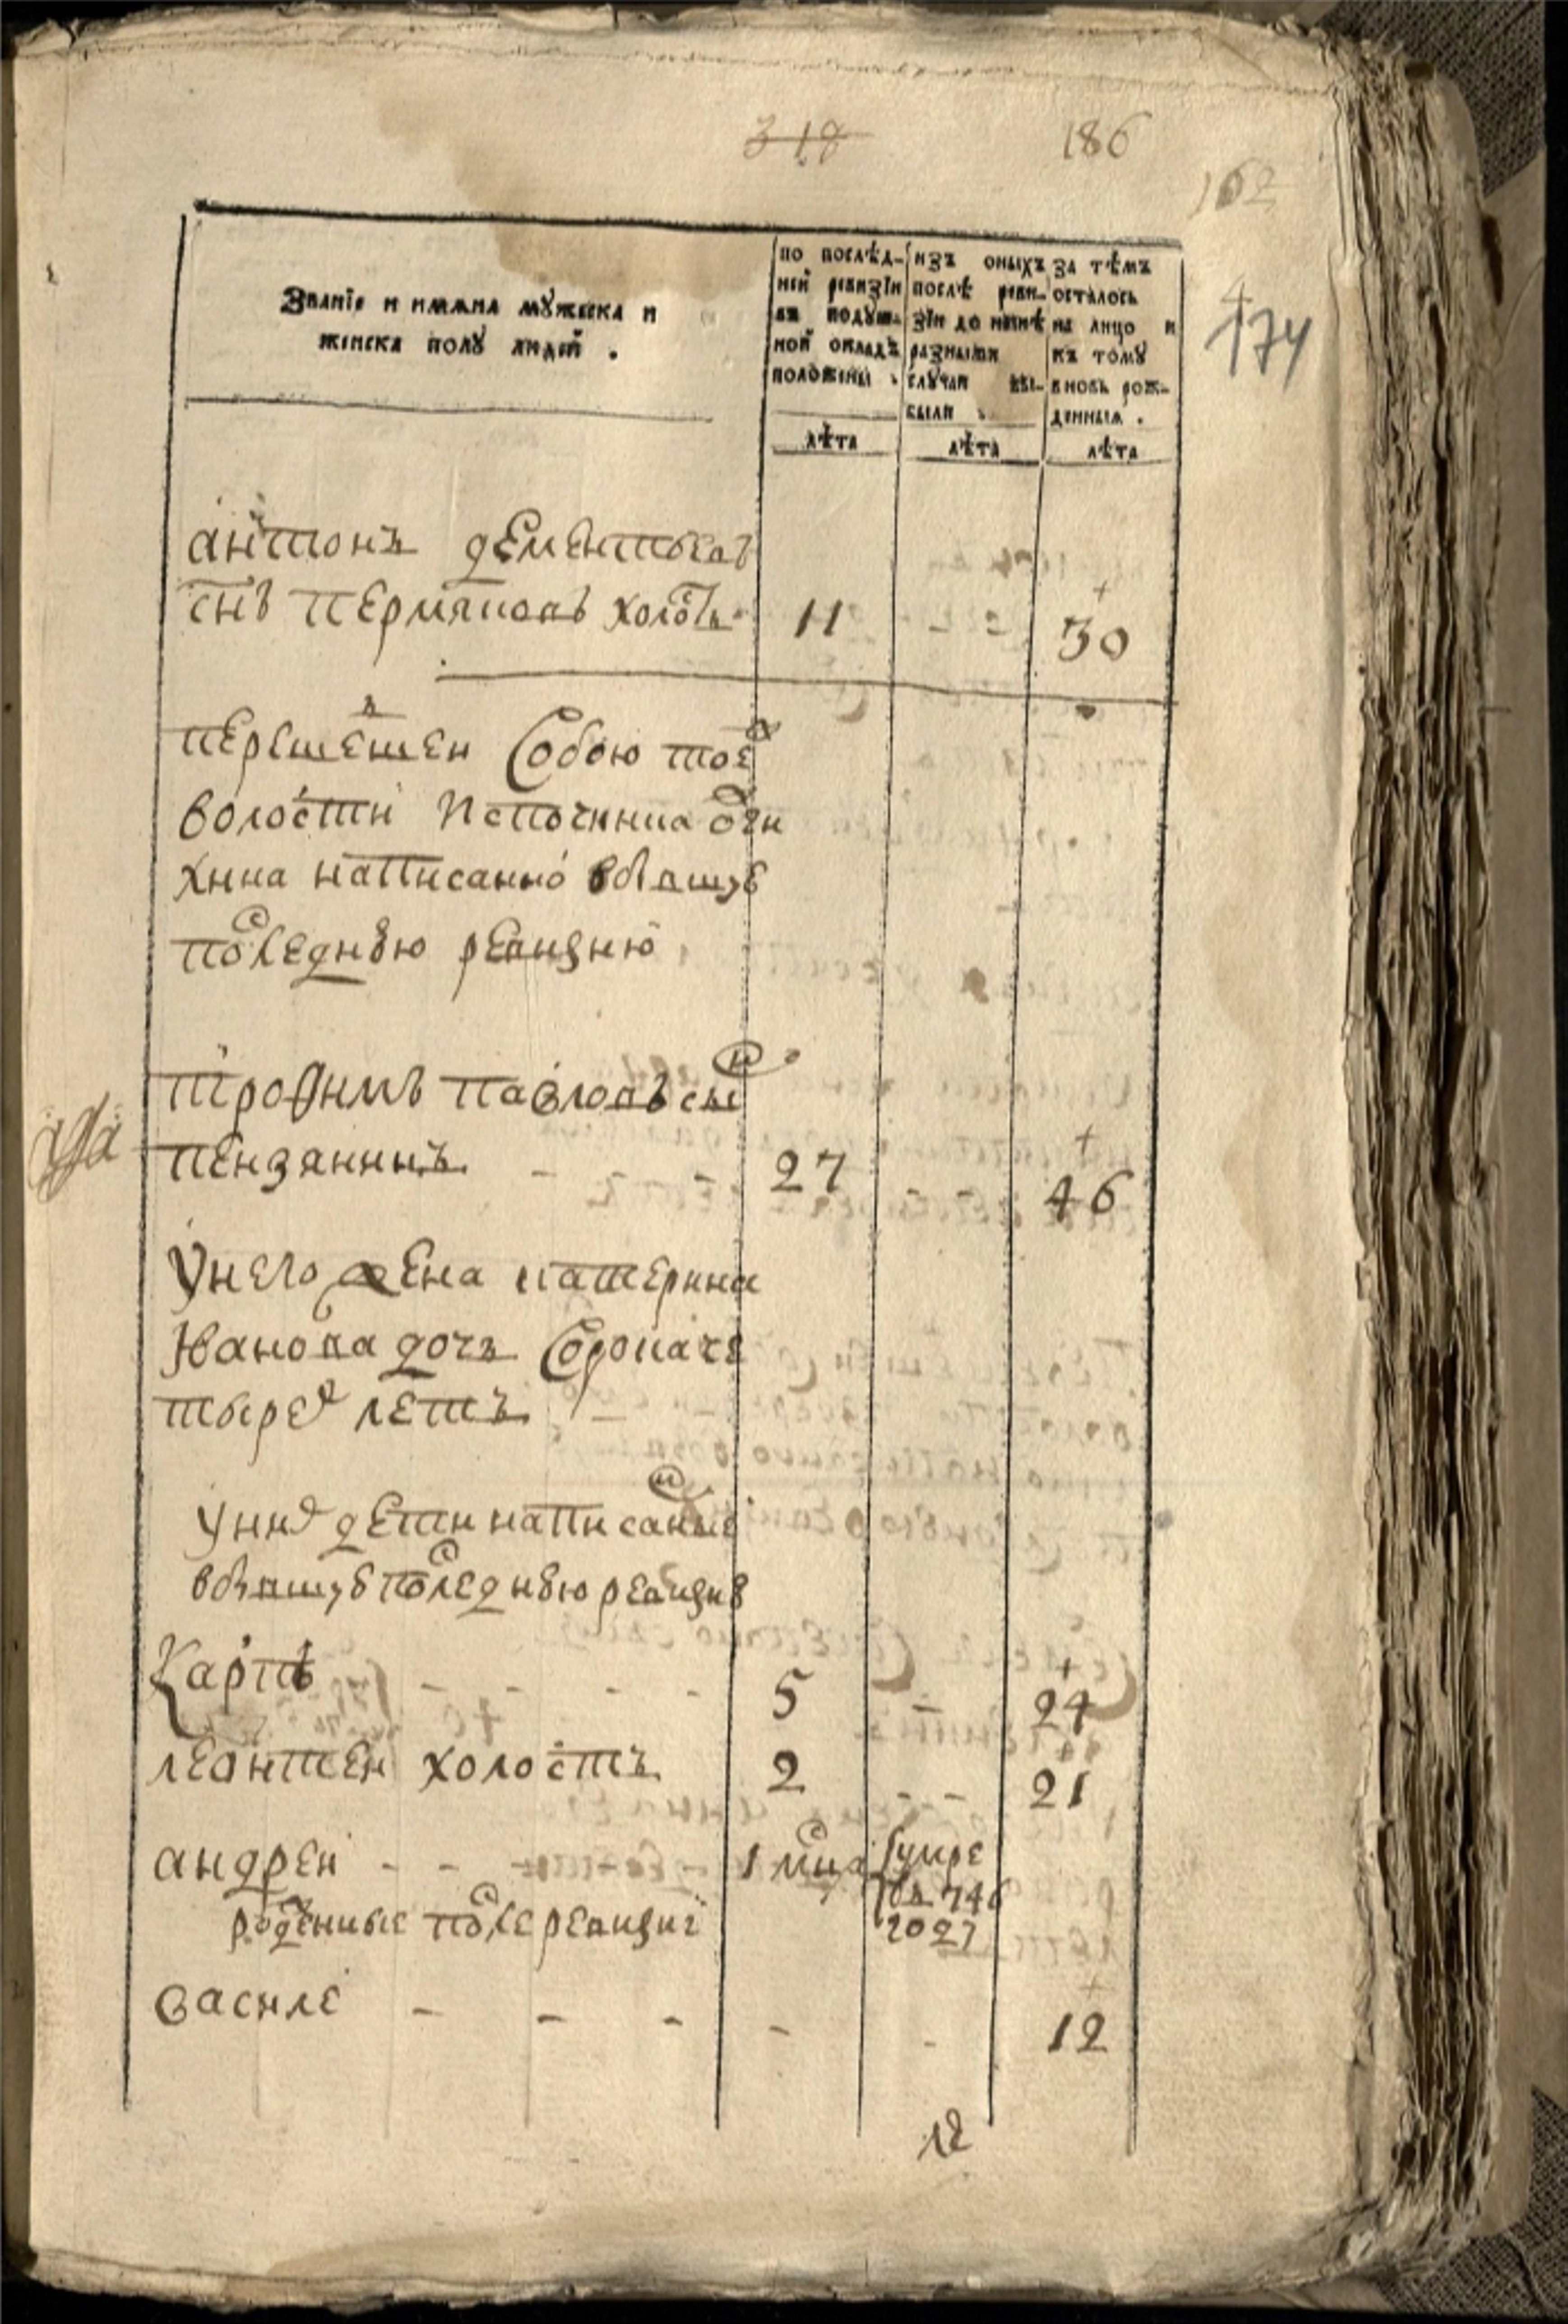 318
186
162
174
Званїе и имѧна мꙋжеска и
женска полꙋ людей .
по послѣд-
ней ревизїи
въ подꙋш-
ной окладъ
положены .
лѣта
изъ оныхъ
послѣ реви-
зїи до нынѣ
разными
слꙋчаи вы-
были .
лѣта
за тѣмъ
осталось
на лицо и
къ томꙋ
вновь рож-
денныѧ .
лѣта
антонъ дементьевъ
снъ пермяковъ холостъ 11 - - 30
перешедшей собою тоеж
волости источника
написанной в бывшую
последнюю ревизию
трофимъ павловъ сынъ
пензянинъ - - 27 - - 46
у него жена катерина
Иванова дочь сорока че
тырех летъ
у них дети написанные
в бывшую последнюю ревизию
карпъ - - - - 5 - 24
леонтей холостъ 2 - - 21
андрей - - 1 мца умре
в 746
году
рожденные после ревизии
василей - - - - - 12
12